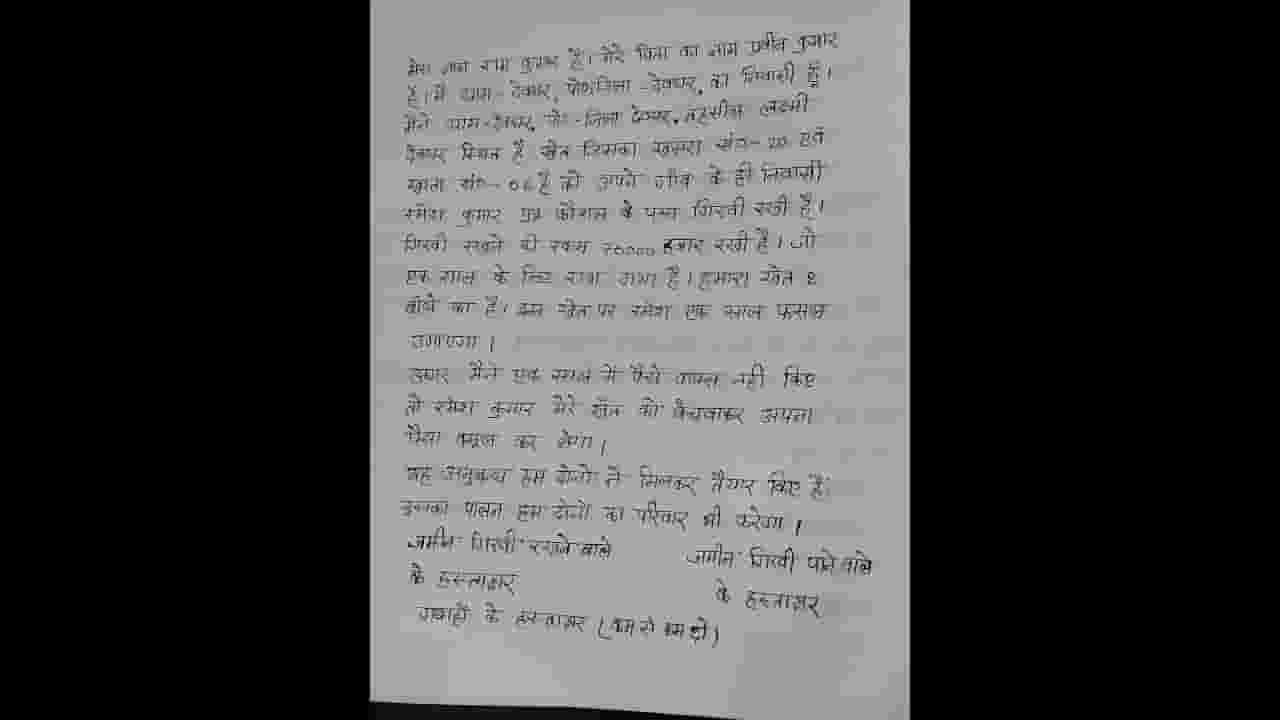 मेरा नाम राम कुमार है। मेरे पिता का नाम प्रवीन कुमार
है। मैं ग्राम-देवघर, पो०जिला-देवघर, का निवासी हूँ।
मैंने ग्राम-देवघर, पो०-जिला देवघर, तहसील लक्ष्मी
देवघर स्थित है खेत जिसका खसरा सं०-20 एवं
खाता सं०-06 है को अपने गाँव के ही निवासी
रमेश कुमार पुत्र कौशल के पास गिरवी रखी है।
गिरवी रखने की रकम 70000 हजार रखी है। जो
एक साल के लिए रखा गया है। हमारा खेत 2
बीघे का है। इस खेत पर रमेश एक साल फसल
उगाएगा।
अगर मैंने एक साल में पैसे वापस नहीं किए
तो रमेश कुमार मेरे खेत को बेचवाकर अपना
पैसा वसूल कर लेगा।
यह अनुबन्ध हम दोनो ने मिलकर तैयार किए है।
इसका पालन हम दोनों का परिवार भी करेगा।
जमीन गिरवी रखने वाले जमीन गिरवी पाने वाले
के हस्ताक्षर के हस्ताक्षर
गवाहों के हस्ताक्षर (कम से कम दो)